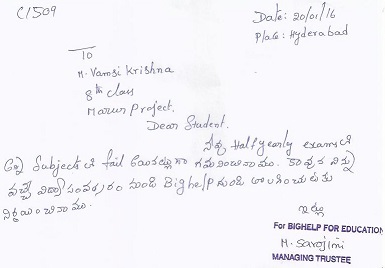 C/509
Date: 20/01/16
Place: Hyderabad
To
M. Vamsi Krishna
8th class
Marun Project.
Dear Student.
నీవు Half yearly exams లో
6 Subjects లో fail
విద్యా సంవత్సరం నుండి Bighelp నుండి తొలగించుటకు
నిర్ణయించినాము.
ఇట్లు
For BIGHELP FOR EDUCATION
M. Sarojini
MANAGING TRUSTEE